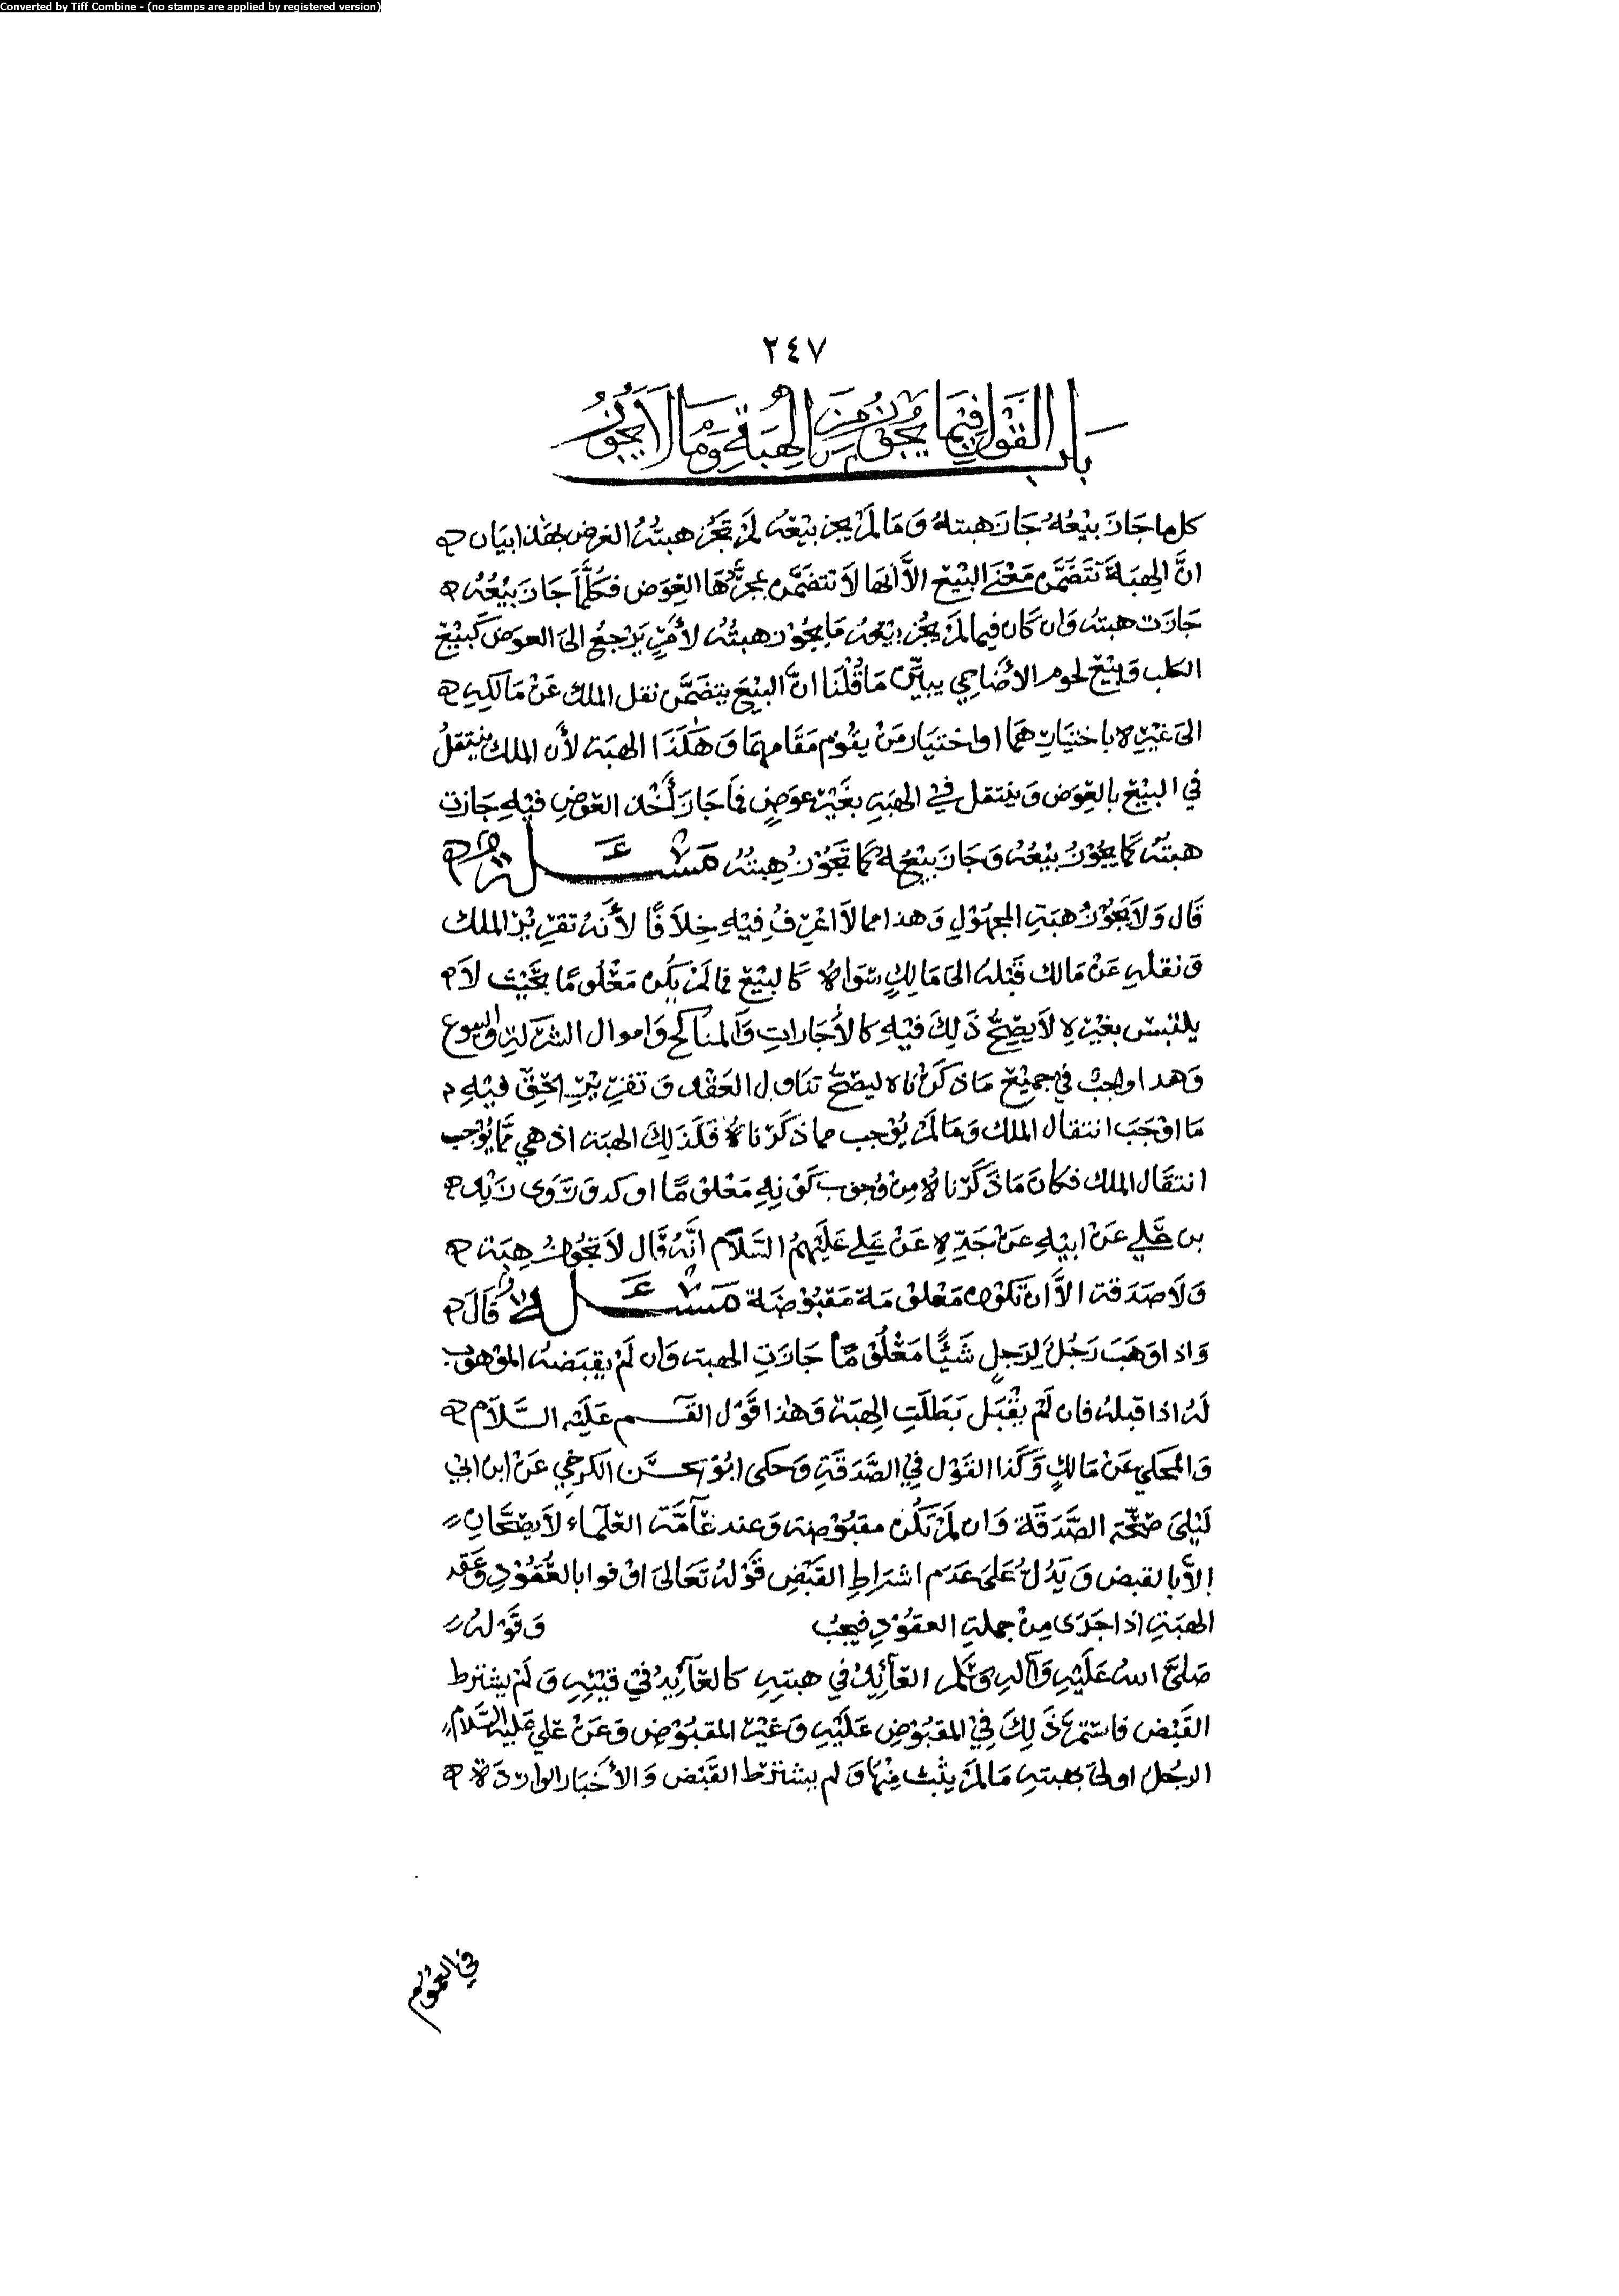 Converted by Tiff Combine - (no stamps are applied by registered version)
٢٤٧
باب القول فيما يجوز من الهبة وما لا يجوز
كل ما جاز بيعه جاز هبته وما لم يجز بيعه لم تجز هبته الغرض بهذا بيان
ان الهبة تتضمن معنى البيع الا انها لا تتضمن بمجردها العوض فكلما جاز بيعه
جازت هبته وان كان فيما لم يجز بيعه ما يجوز هبته لأمر يرجع الى العوض كبيع
الكلب وبيع لحوم الأضاحي يبين ما قلنا ان البيع يتضمن نقل الملك عن مالكه
الى غيره باختيارهما او اختيار من يقوم مقامهما وهكذا الهبة لأن الملك ينتقل
في البيع بالعوض وينتقل في الهبة بغير عوض فما جاز أخذ العوض فيه جازت
هبته كما يجوز بيعه وجاز بيعه كما تجوز هبته مسئلة
قال ولا يجوز هبة المجهول وهذا مما لا اعرف فيه خلافا لأنه تقرير الملك
ونقله عن مالك قبله الى مالك سواه كالبيع فما لم يكن معلوما بحيث لا
يلتبس بغيره لا يصح ذلك فيه كالأجارات والمناكح واموال الشركة
وهذا واجب في جميع ما ذكرناه ليصح تناول العقد وتقرير الحق فيه
ما اوجب انتقال الملك وما لم يوجب مما ذكرناه فكذلك الهبة اذ هي مما يوجب
انتقال الملك فكان ما ذكرناه من وجوب كونه معلوما اوكد وروى زيد
بن علي عن ابيه عن جده عن علي عليهم السلام انه قال لا تجوز هبة
ولا صدقة الا ان تكون معلومة مقبوضة مسئلة قال
واذا وهب رجل لرجل شيئا معلوما جازت الهبة وان لم يقبضه الموهوب
له اذا قبله فان لم يقبل بطلت الهبة وهذا قول القسم عليه السلام
والمحكي عن مالك وكذا القول في الصدقة وحكى ابو الحسن الكرخي عن ابن ابي
ليلى صحة الصدقة وان لم تكن مقبوضة وعند عامة العلماء لا يصحان
الا بالقبض ويدل على عدم اشتراط القبض قوله تعالى اوفوا بالعقود وعقد
الهبة اذا جرى من جملة العقود فيجب وقوله
صلى الله عليه وآله وسلم العائد في هبته كالعائد في قيئه ولم يشترط
القبض فاستمر ذلك في المقبوض عليه وغير المقبوض وعن علي عليه السلام
الرجل اولى بهبته ما لم يثب منها ولم يشترط القبض والأخبار الواردة
في العموم